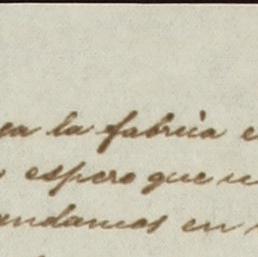 la fabrica
espero que
andamos en